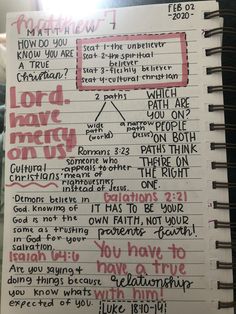 FEB 02
-2020-
Matthew 7
MATTHEW 7
HOW DO YOU
KNOW YOU ARE
A TRUE
Christian?
Seat 1-the unbeliever
Seat 2-the spiritual
believer
Seat 3-fleshly believer
Seat 4-cultural christian
Lord,
have
mercy
on us!
2 paths
wide
path
(world)
a narrow
path
WHICH
PATH ARE
YOU ON?
PEOPLE
ON BOTH
PATHS THINK
THEIRE ON
THE RIGHT
ONE.
Romans 3:23
Cultural
Christians:
someone who
appeals to other
means of
righteousness
instead of Jesus.
Demons believe in
God. Knowing of
God is not the
same as trusting
in God for your
salvation.
Galations 2:21
IT HAS TO BE YOUR
OWN FAITH, NOT YOUR
parents faith!
Isaiah 64:6
Are you saying &
doing things because
you know whats
expected of you?
You have to
have a true
relationship
with him!
(Luke 18:10-14)